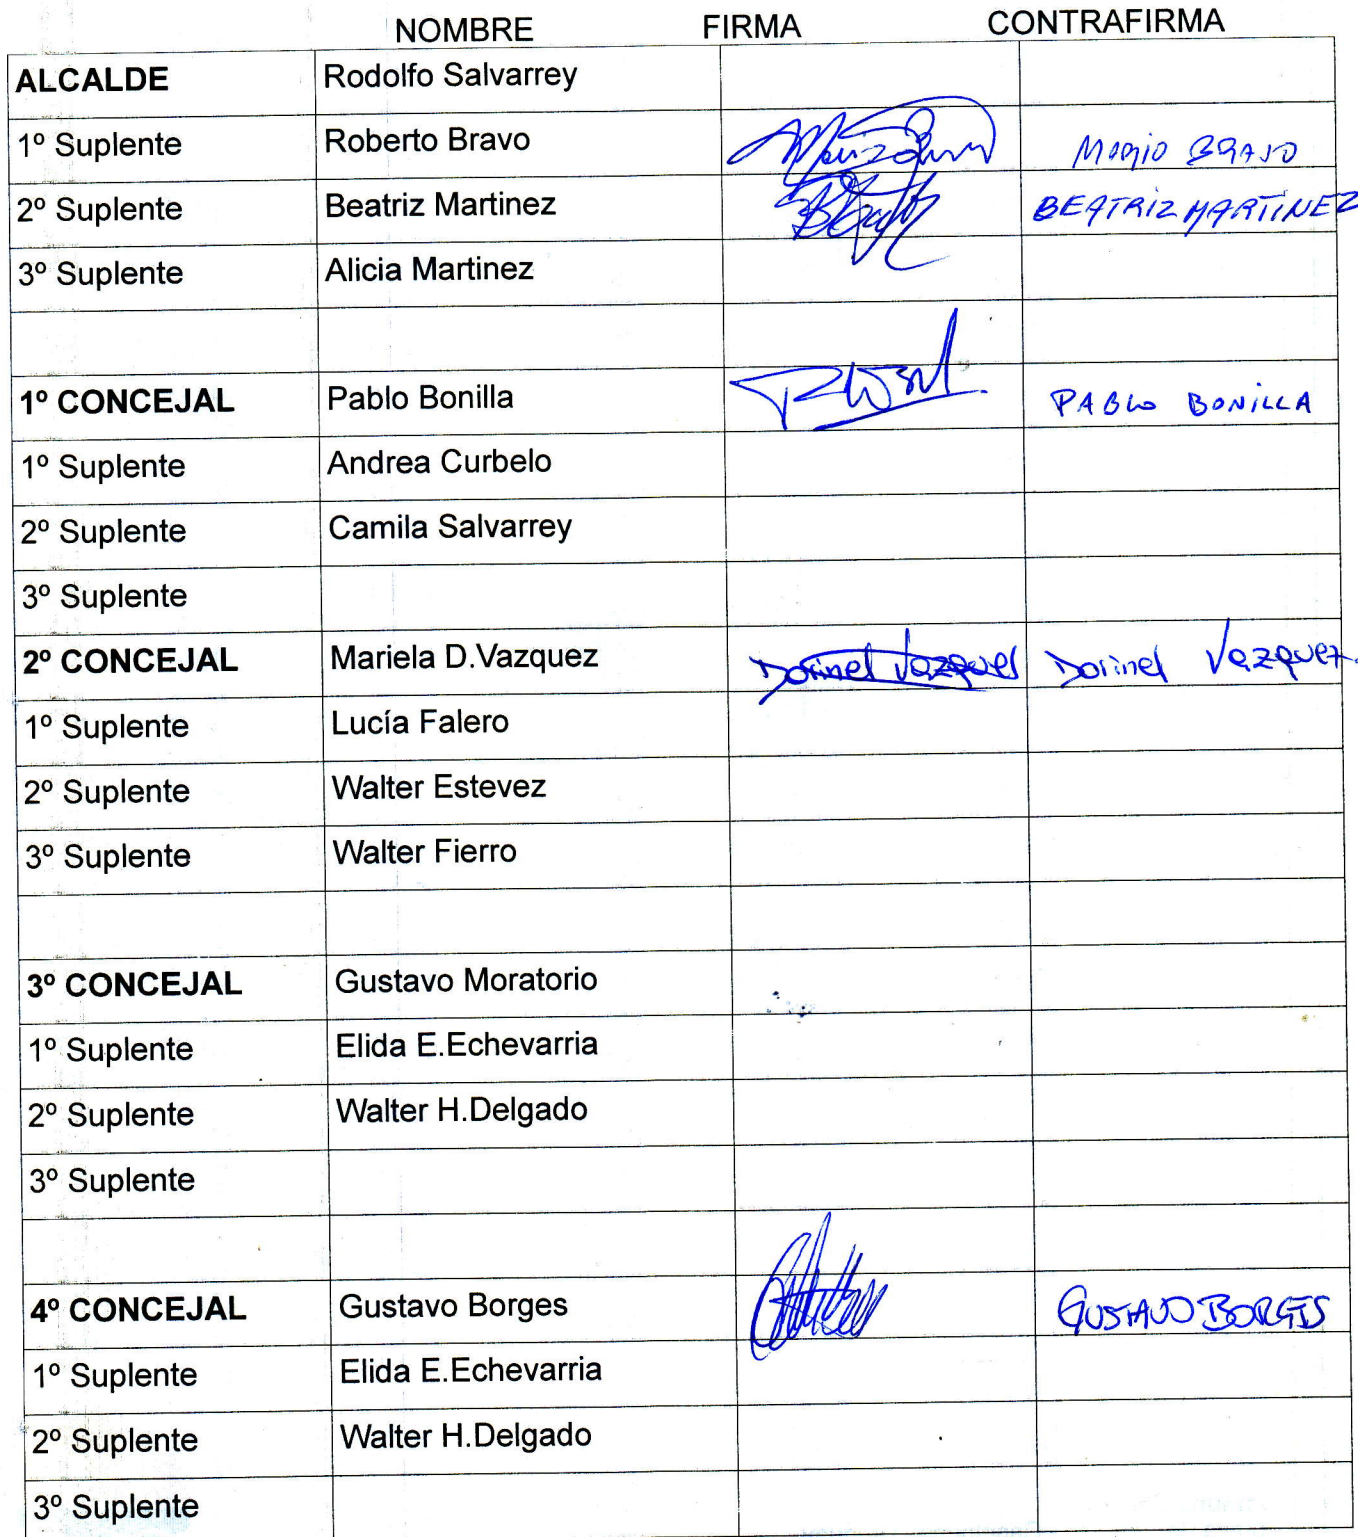 NOMBRE FIRMA CONTRAFIRMA
ALCALDE Rodolfo Salvarrey
1º Suplente Roberto Bravo MARIO BRAVO
2º Suplente Beatriz Martinez BEATRIZ MARTINEZ
3º Suplente Alicia Martinez
1º CONCEJAL Pablo Bonilla PABLO BONILLA
1º Suplente Andrea Curbelo
2º Suplente Camila Salvarrey
3º Suplente
2º CONCEJAL Mariela D.Vazquez Dorinel Vazquez Dorinel Vazquez.
1º Suplente Lucía Falero
2º Suplente Walter Estevez
3º Suplente Walter Fierro
3º CONCEJAL Gustavo Moratorio
1º Suplente Elida E.Echevarria
2º Suplente Walter H.Delgado
3º Suplente
4º CONCEJAL Gustavo Borges GUSTAVO BORGES
1º Suplente Elida E.Echevarria
2º Suplente Walter H.Delgado
3º Suplente